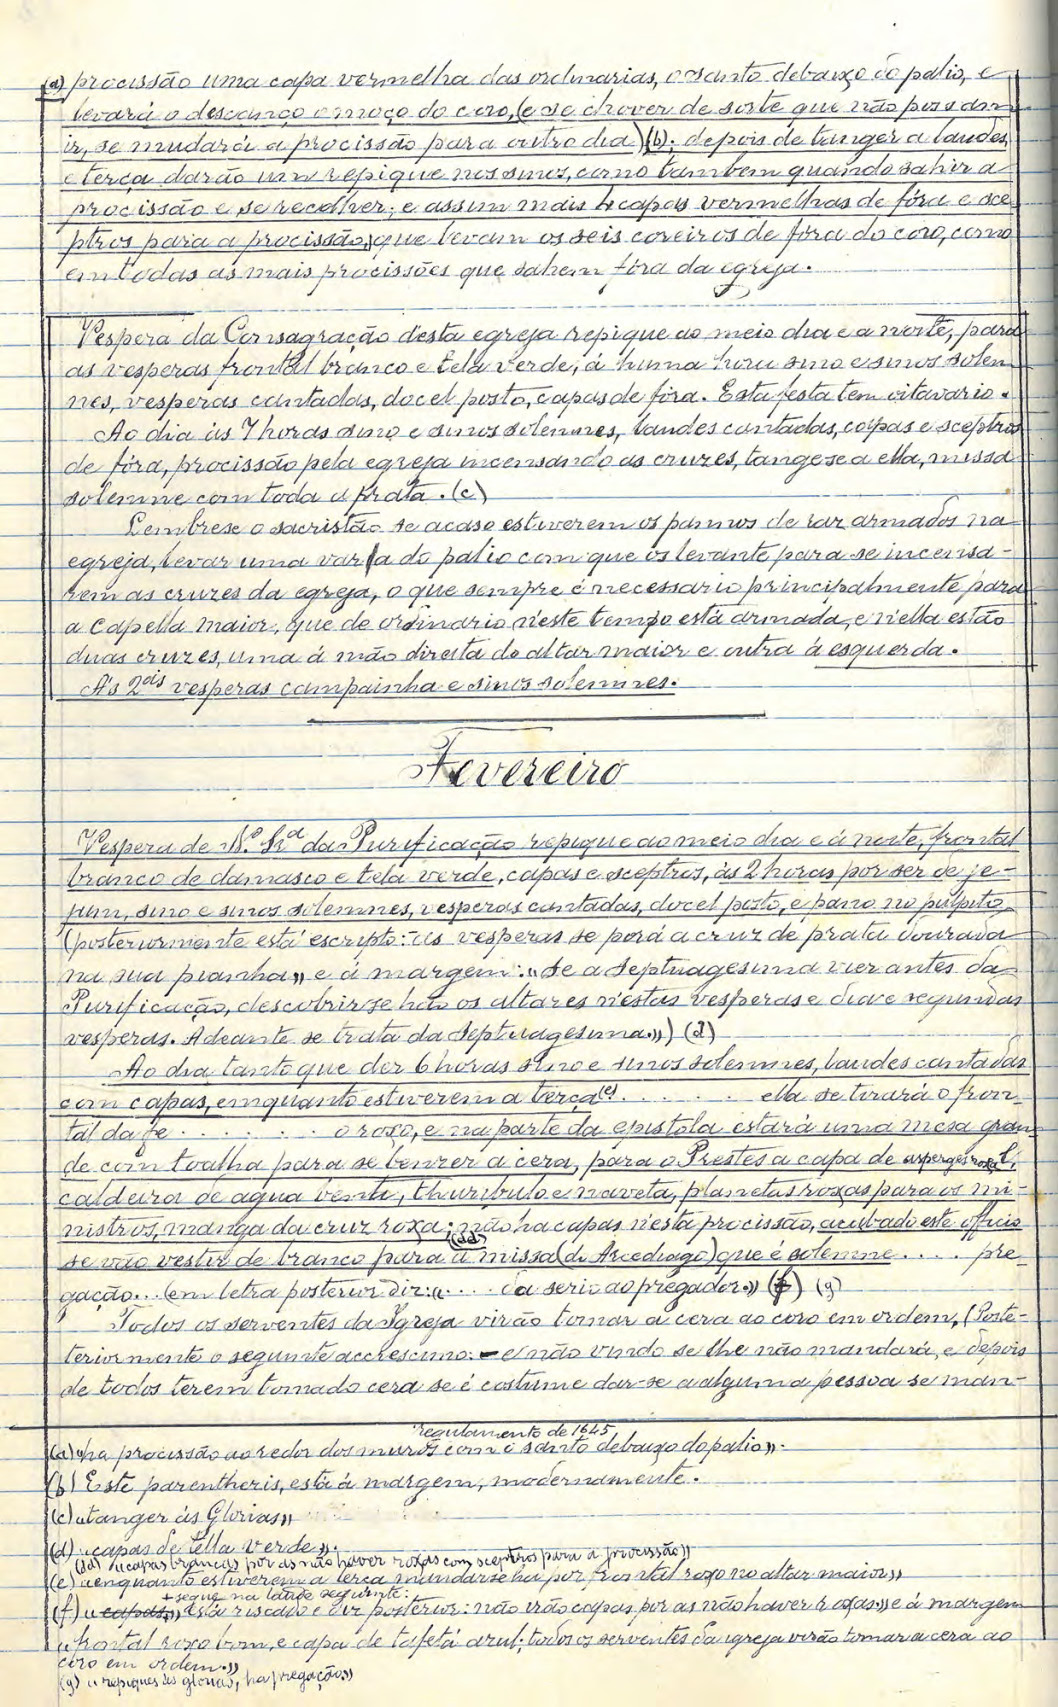 (a) procissão uma capa vermelha das ordinarias, o santo debaixo do palio, e
levará o descanço o moço do coro, (e se chover de sorte que não possam
ir, se mudará a procissão para outro dia) (b); depois de tanger a laudes,
e terça darão um repique nos sinos, como tambem quando sahir a
procissão e se recolher; e assim mais 4 capas vermelhas de fóra e sce-
ptros para a procissão, que levam os seis coreiros de fóra do coro, como
em todas as mais procissões que sahem fóra da egreja.
Vespera da Consagração d'esta egreja repique ao meio dia e a noite, para
as vesperas frontal branco e tela verde, á huma hora sino e sinos solem-
nes, vesperas cantadas, docel posto, capas de fóra. Esta festa tem oitavario.
Ao dia ás 7 horas sino e sinos solemnes, laudes cantadas, capas e sceptros
de fóra, procissão pela egreja incensando as cruzes, tange-se a ella, missa
solemne com toda a prata. (c)
Lembre-se o sacristão se acaso estiverem os pannos de raz armados na
egreja, levar uma vara do palio com que os levante para se incensa-
rem as cruzes da egreja, o que sempre é necessario principalmente para
a capella maior, que de ordinario n'este tempo está armada, e n'ella estão
duas cruzes, uma á mão direita do altar maior e outra á esquerda.
Ás 2ªs vesperas campainha e sinos solemnes.
Fevereiro
Vespera de N. Sr.ª da Purificação repique ao meio dia e á noite, frontal
branco de damasco e tela verde, capas e sceptros, ás 2 horas por ser de je-
jum, sino e sinos solemnes, vesperas cantadas, docel posto, e pano no pulpito,
(posteriormente está escripto: "ás vesperas se porá a cruz de prata dourada
na sua pianha" e á margem: "se a Septuagesima vier antes da
Purificação, descobrir-se hão os altares n'estas vesperas e duas segundas
vesperas. Adeante se trata da Septuagesima.") (d)
Ao dia tanto que der 6 horas sino e sinos solemnes, laudes cantadas
com capas, emquanto estiverem a terça (e) . . . . . . ella se tirará o fron-
tal da fe . . . . . . . o roxo, e na parte da epistola estará uma mesa gran-
de com toalha para se benzer a cera, para o Prestes a capa de asperges roxa,
caldeira de agua benta, thuribulo e naveta, planetas roxas para os mi-
nistros, manga da cruz roxa; não ha capas n'esta procissão, acabado este officio
se vão vestir de branco para (dd) a missa (do Arcediago) que é solemne . . . . pre-
gação... (em letra posterior diz: ".... da seria ao pregador.") (f) (g)
Todos os serventes da Igreja virão tomar a cera ao coro em ordem, (Poste-
teriormente o seguinte accrescimo: - e não vindo se lhe não mandará, e depois
de todos terem tomado cera se é costume dar-se a alguma pessoa se man-
regulamento de 1645
(a) "ha procissão ao redor dos muros com o santo debaixo do palio".
(b) Este parenthesis, está á margem, modernamente.
(c) "tanger ás Glorias"
(d) "capas de tella verde".
(dd) "capas brancas por as não haver roxas com sceptros para a procissão"
(e) "enquanto estiverem a terça mandarse ha por frontal roxo no altar maior"
+ segue na laude seguinte:
(f) "capas" está riscado e diz posterior: não irão capas por as não haver roxas" e á margem
"frontal roxo bom, e capa de tafetá azul; todos os serventes da igreja virão tomar a cera ao
coro em ordem."
(g) "repiques ás glorias, ha pregação"